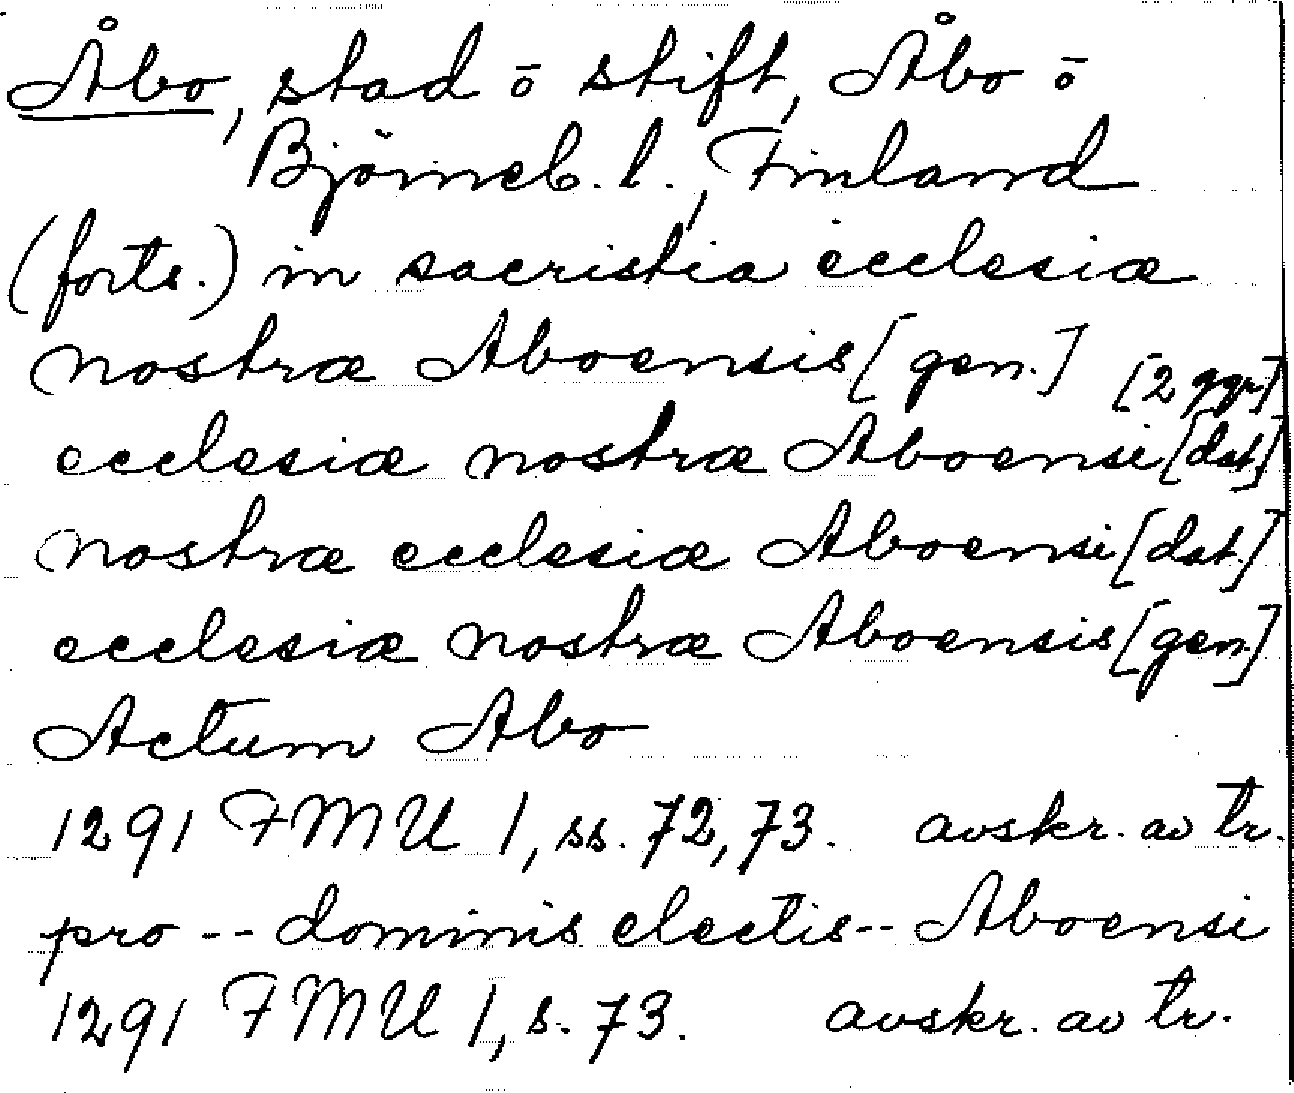 Åbo, stad ō stift, Åbo ō
Björneb. l., Finland
(forts.) in sacristia ecclesiæ
nostræ Aboensis [gen.] [2 ggr]
ecclesiæ nostræ Aboensi [dat.]
nostræ ecclesiæ Aboensi [dat.]
ecclesiæ nostræ Aboensis [gen.]
Actum Abo
1291 FMU 1, ss. 72, 73. avskr. av tr.
pro -- dominis electis -- Aboensi
1291 FMU 1, s. 73. avskr. av tr.